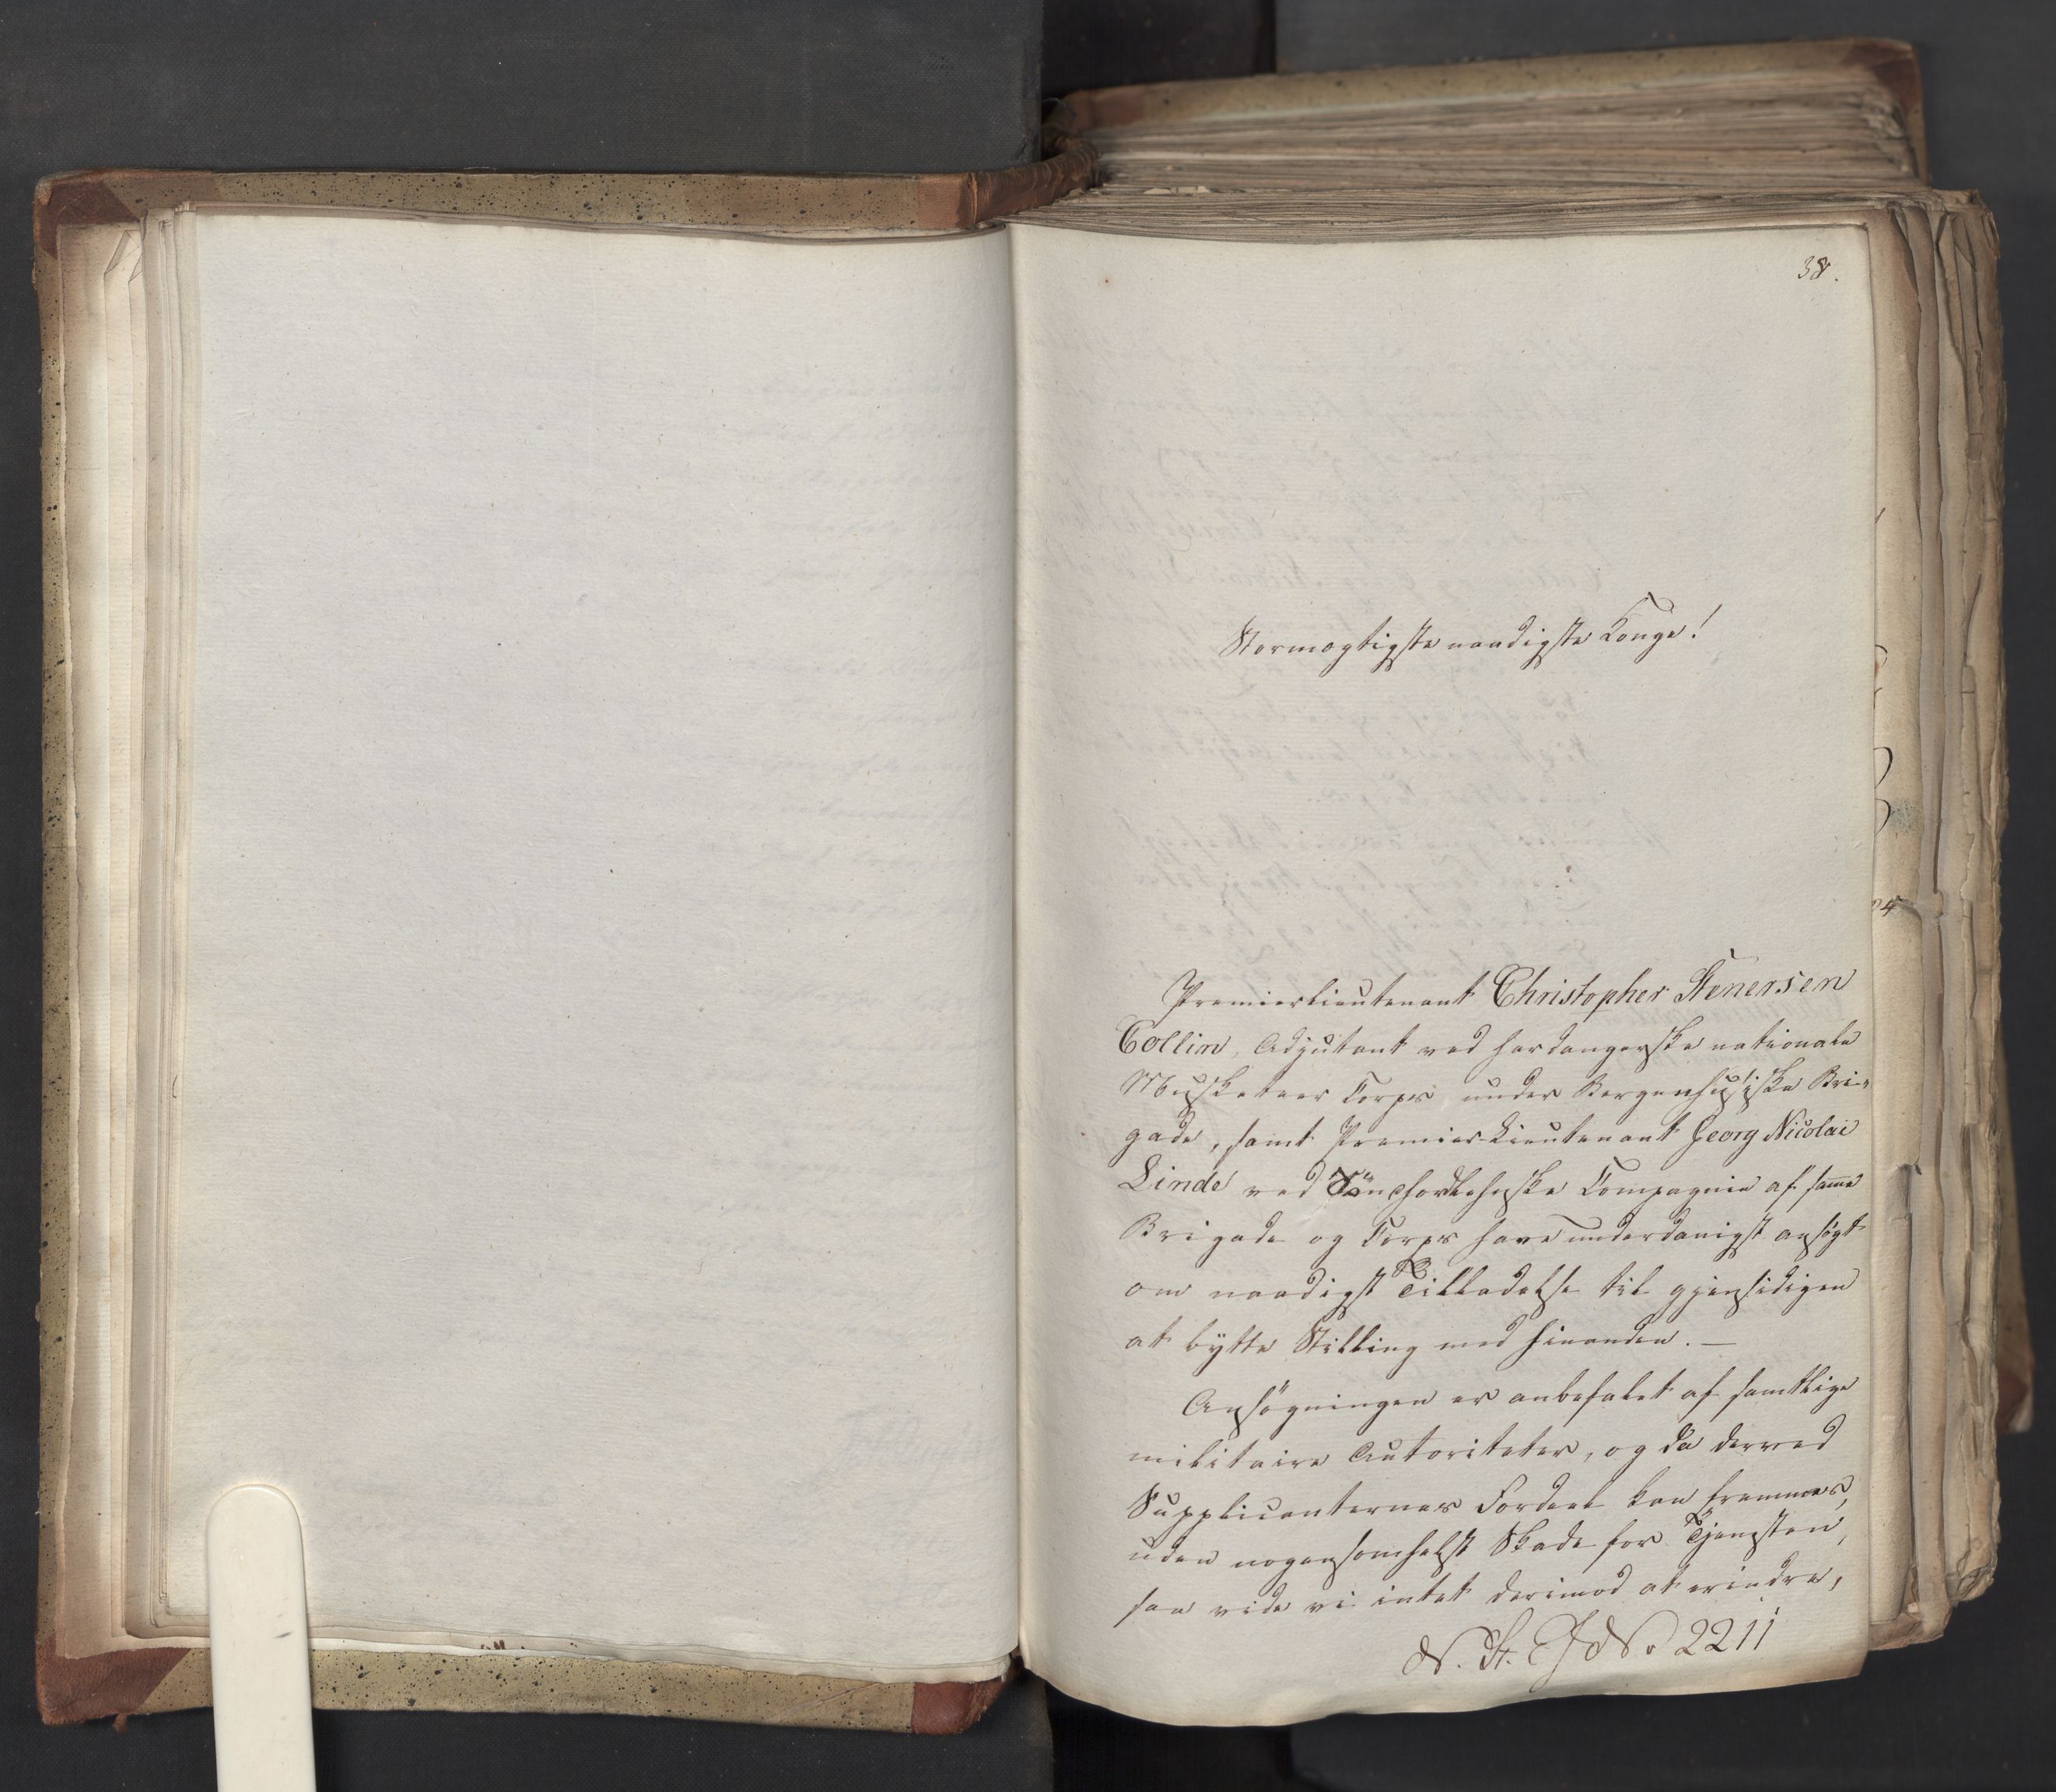 38.
Stormægtigste naadigste Konge!
Premierlieutenant Christopher Stenersen
Collin, Adjutant ved hardangerske nationale
Musketeer Corps under Bergenhusiske Bri-
gade, samt Premier-Lieutenant Georg Nicolai
Linde ved Söndhordlehnske Compagnie af samme
Brigade og Corps have underdanigst ansögt
om naadigst Tilladelse til gjensidigen
at bytte Stilling med hinanden. —
Ansögningen er anbefalet af samtlige
militaire Autoriteter, og da derved
Supplicanternes Fordeel kan fremmes,
uden nogensomhelst Skade for Tjenesten,
saa vide vi intet derimod at erindre,
N. St. J No 2211